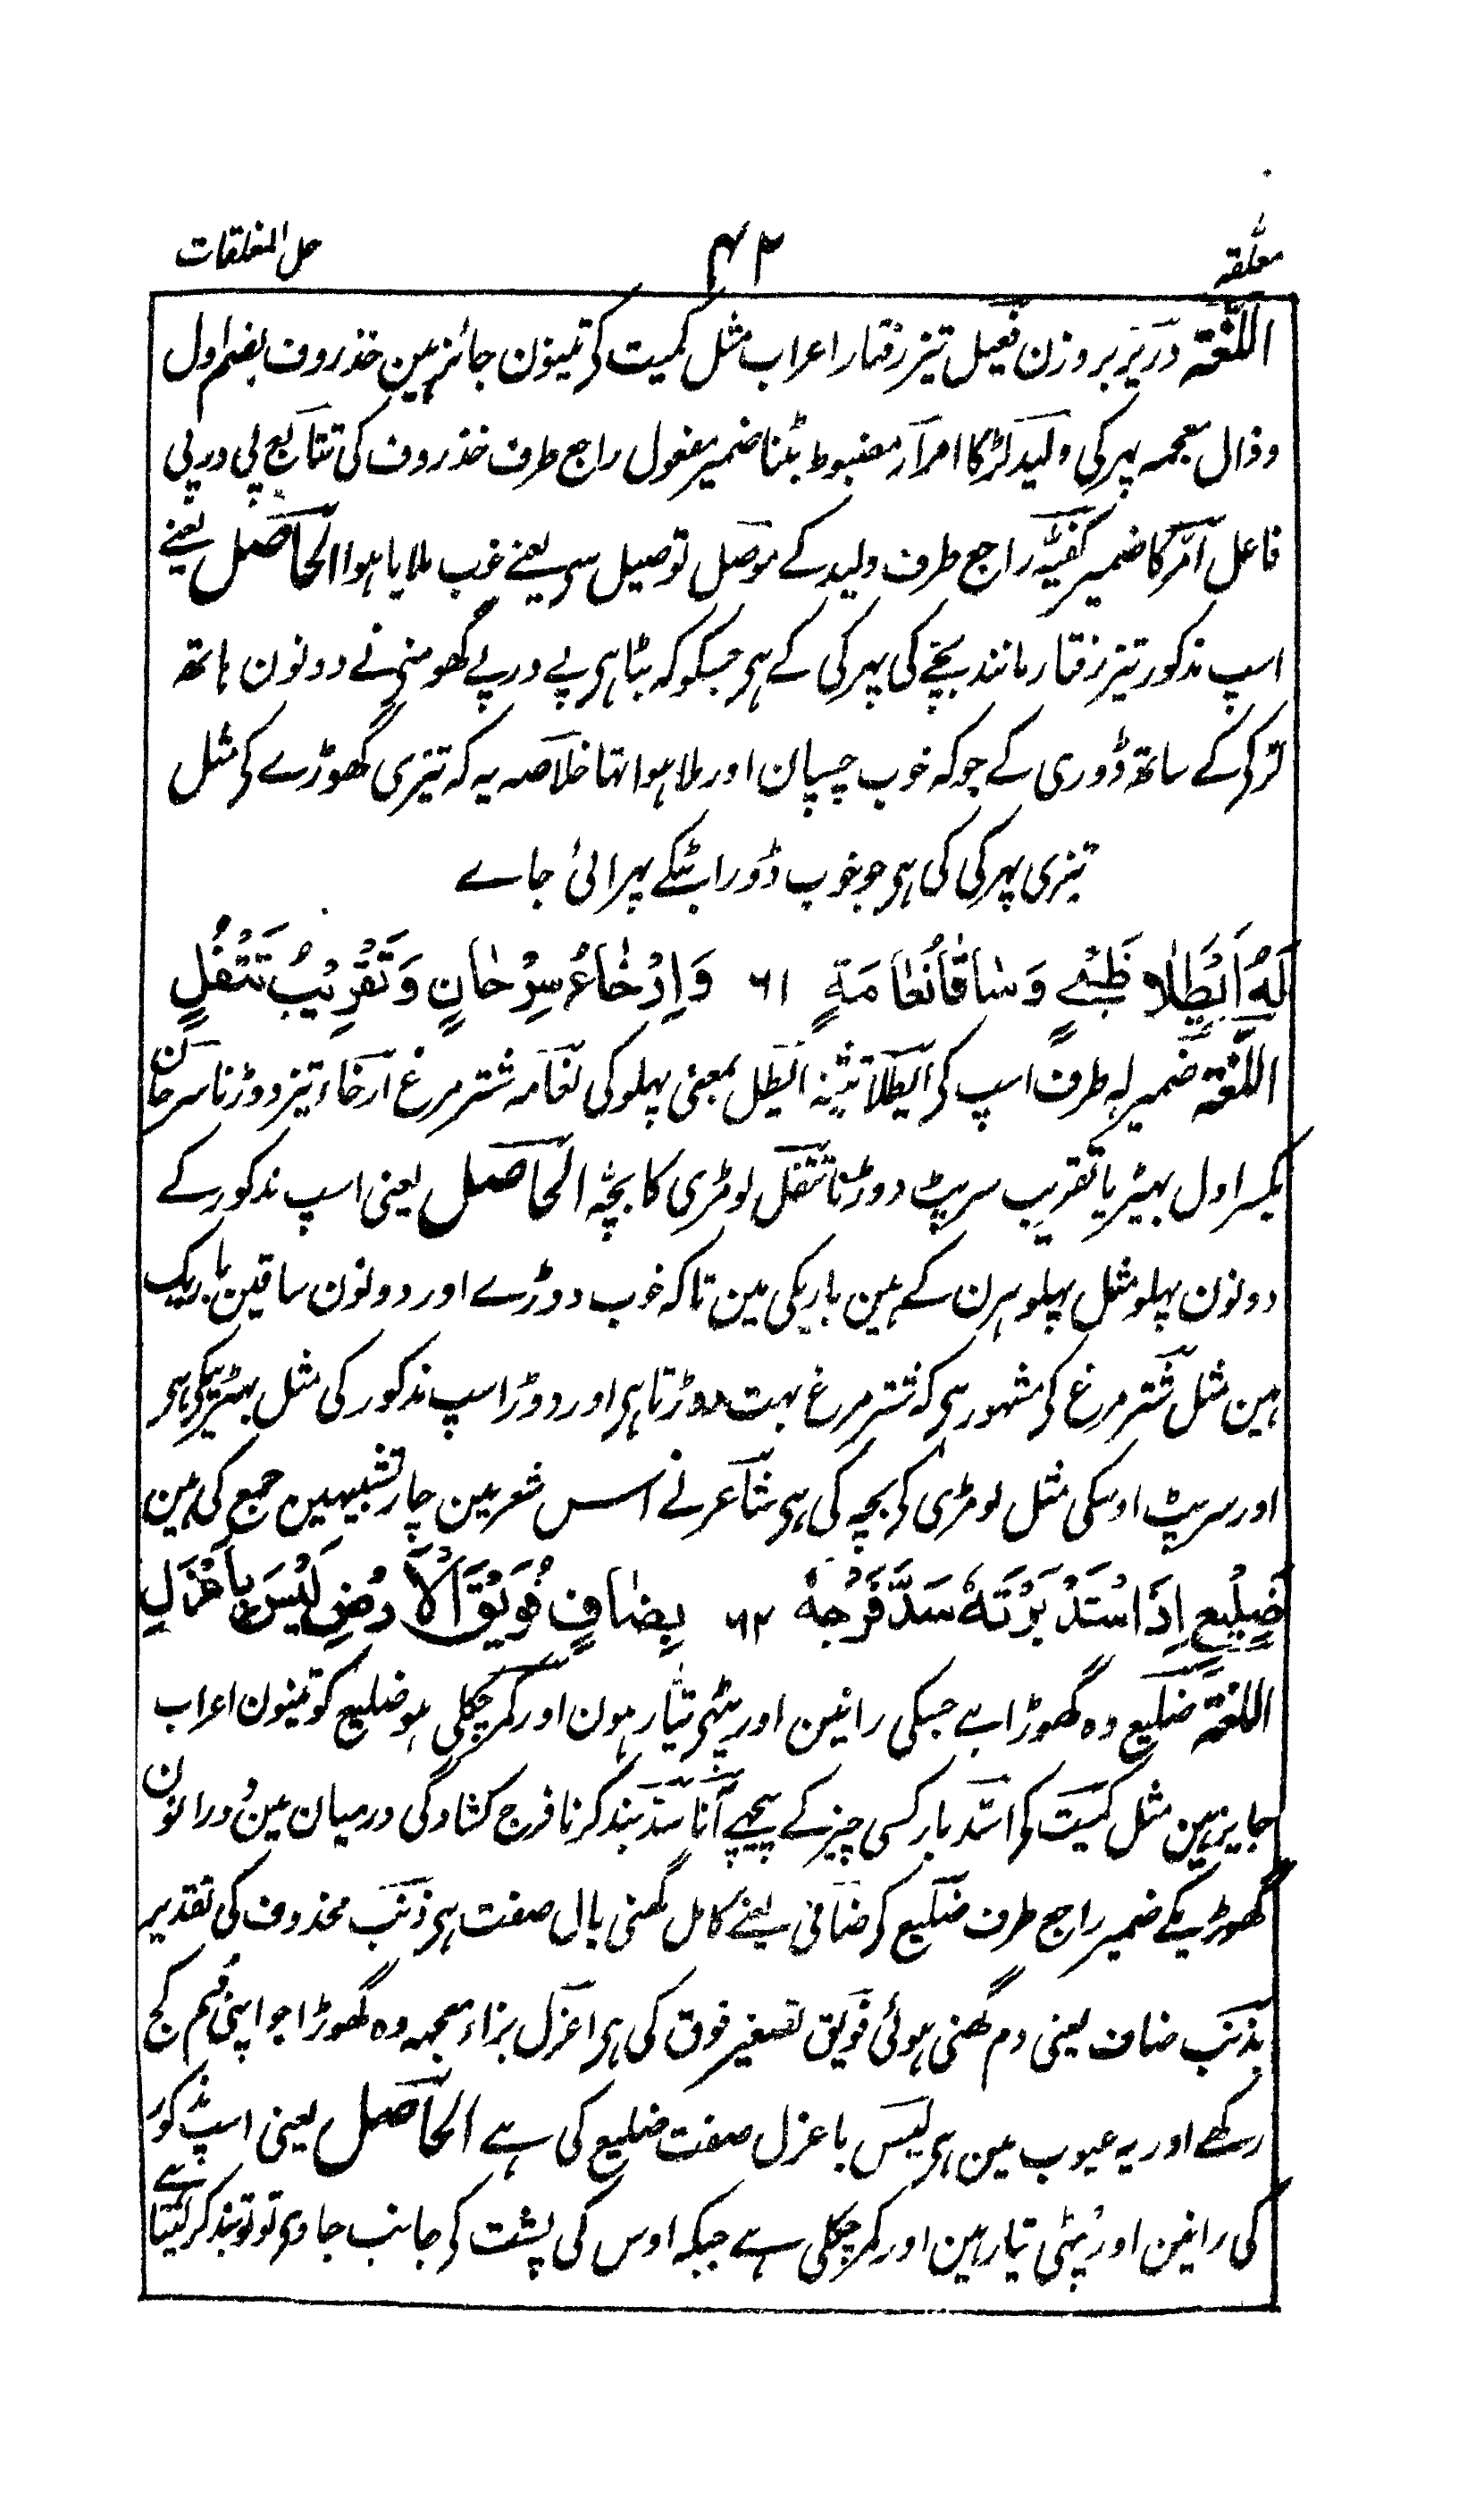 معلقہ ۴۲ حل المغلقات
اللغۃ دریر بروزن فعیل تیز رفتار اعراب مثل کمیت کے تینون جائز ہین خذروف بضم اول
و ذال معجمہ پہرکی ولید لڑکا امرار مضبوط بٹنا ضمیر مفعول راجع طرف خذروف کی تتابع پی در پی
فاعل امر کا ضمیر کفیہ راجع طرف ولید کے موصل توصیل سے یعنے خوب ملایا ہوا الحاصل یعنے
اسپ مذکور تیز رفتار مانند بچے کی پہرکی کے ہے جسکو کہ بٹا ہے پے در پے گھومنے نے دونون ہاتھ
لڑکے کے ساتھ ڈوری کے جو کہ خوب چسپان اور ملا ہوا تہا خلاصہ یہ کہ تیزی گھوڑے کے مثل
تیزی پہرکی کی ہے جو خوب ڈورا بٹکے پہرائی جاے
لَهُ أَيْطَلَا ظَبْيٍ وَسَاقَا نَعَامَةٍ ۶۱ وَإِرْخَاءُ سِرْحَانٍ وَتَقْرِيْبُ تَتْفُلٍ
اللغۃ ضمیر لہ طرف اسپ کے ایطلا تثنیہ ایطل بمعنی پہلو کی نعامہ شتر مرغ ارخاء تیز دوڑنا سرحان
بکسر اول بہیڑیا تقریب سرپٹ دوڑنا تتفل لومڑی کا بچہ الحاصل یعنی اسپ مذکور کے
دونون پہلو مثل پہلو ہرن کے ہین باریکی مین تاکہ خوب دوڑے اور دونون ساقین باریک
ہین مثل شتر مرغ کے مشہور ہے کہ شتر مرغ بہت دوڑتا ہے اور دوڑ اسپ مذکور کی مثل بہیڑیکی ہے
اور سرپٹ اوسکی مثل لومڑی کے بچہ کی ہے شاعر نے اس شعر مین چار تشبیہین جمع کی ہین
ضَلِيْعٍ إِذَا اسْتَدْبَرْتَهُ سَدَّ فَرْجَهُ ۶۲ بِضَافٍ فُوَيْقَ الْأَرْضِ لَيْسَ بِأَعْزَلِ
اللغۃ ضلیع وہ گھوڑا ہے جسکی رانین اور پٹہے تیار ہون اور کمر چکلی ہو ضلیع کو تینون اعراب
جایز ہین مثل کمیت کے استدبار کسی چیز کے پیچہے آنا سد بند کرنا فرج کشادگی درمیان مین دو رانون
گھوڑیکے ضمیر راجع طرف ضلیع کے ضافی یعنے کامل گھنی بال صفت ہے ذنب محذوف کی تقدیر
بذنب ضاف یعنی دم گھنی ہوئی فویق تصغیر فوق کی ہے اعزل بزاء معجمہ وہ گھوڑا جو اپنی دم کج
رکھے اور یہ عیوب مین ہے لیس باعزل صفت ضلیع کی ہے الحاصل یعنی اسپ مذکور
کی رانین اور پٹہی تیار ہین اور کمر چکلی ہے جبکہ اوس کی پشت کے جانب جاوے تو تو بند کر لیتا ہے